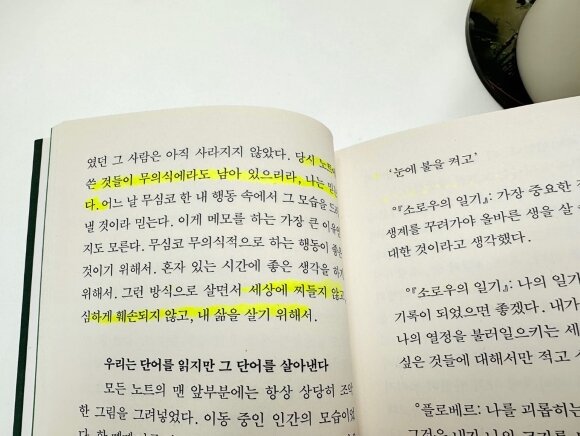 였던 그 사람은 아직 사라지지 않았다. 당시 노트에
쓴 것들이 무의식에라도 남아 있으리라, 나는 믿는
다. 어느 날 무심코 한 내 행동 속에서 그 모습을 드러
낼 것이라 믿는다. 이게 메모를 하는 가장 큰 이유인
지도 모른다. 무심코 무의식적으로 하는 행동이 좋은
것이기 위해서. 혼자 있는 시간에 좋은 생각을 하기
위해서. 그런 방식으로 살면서 세상에 찌들지 않고
심하게 훼손되지 않고, 내 삶을 살기 위해서.
우리는 단어를 읽지만 그 단어를 살아낸다
모든 노트의 맨 앞부분에는 항상 상당히 조악
한 그림을 그려넣었다. 이동 중인 인간의 모습이
‘눈에 불을 켜고’
°『소로우의 일기』: 가장 중요한
생계를 꾸려가야 올바른 생을 살
대한 것이라고 생각했다.
°『소로우의 일기』: 나의 일기
기록이 되었으면 좋겠다. 내가
나의 열정을 불러일으키는 세
싶은 것들에 대해서만 적고
°플로베르: 나를 괴롭히는